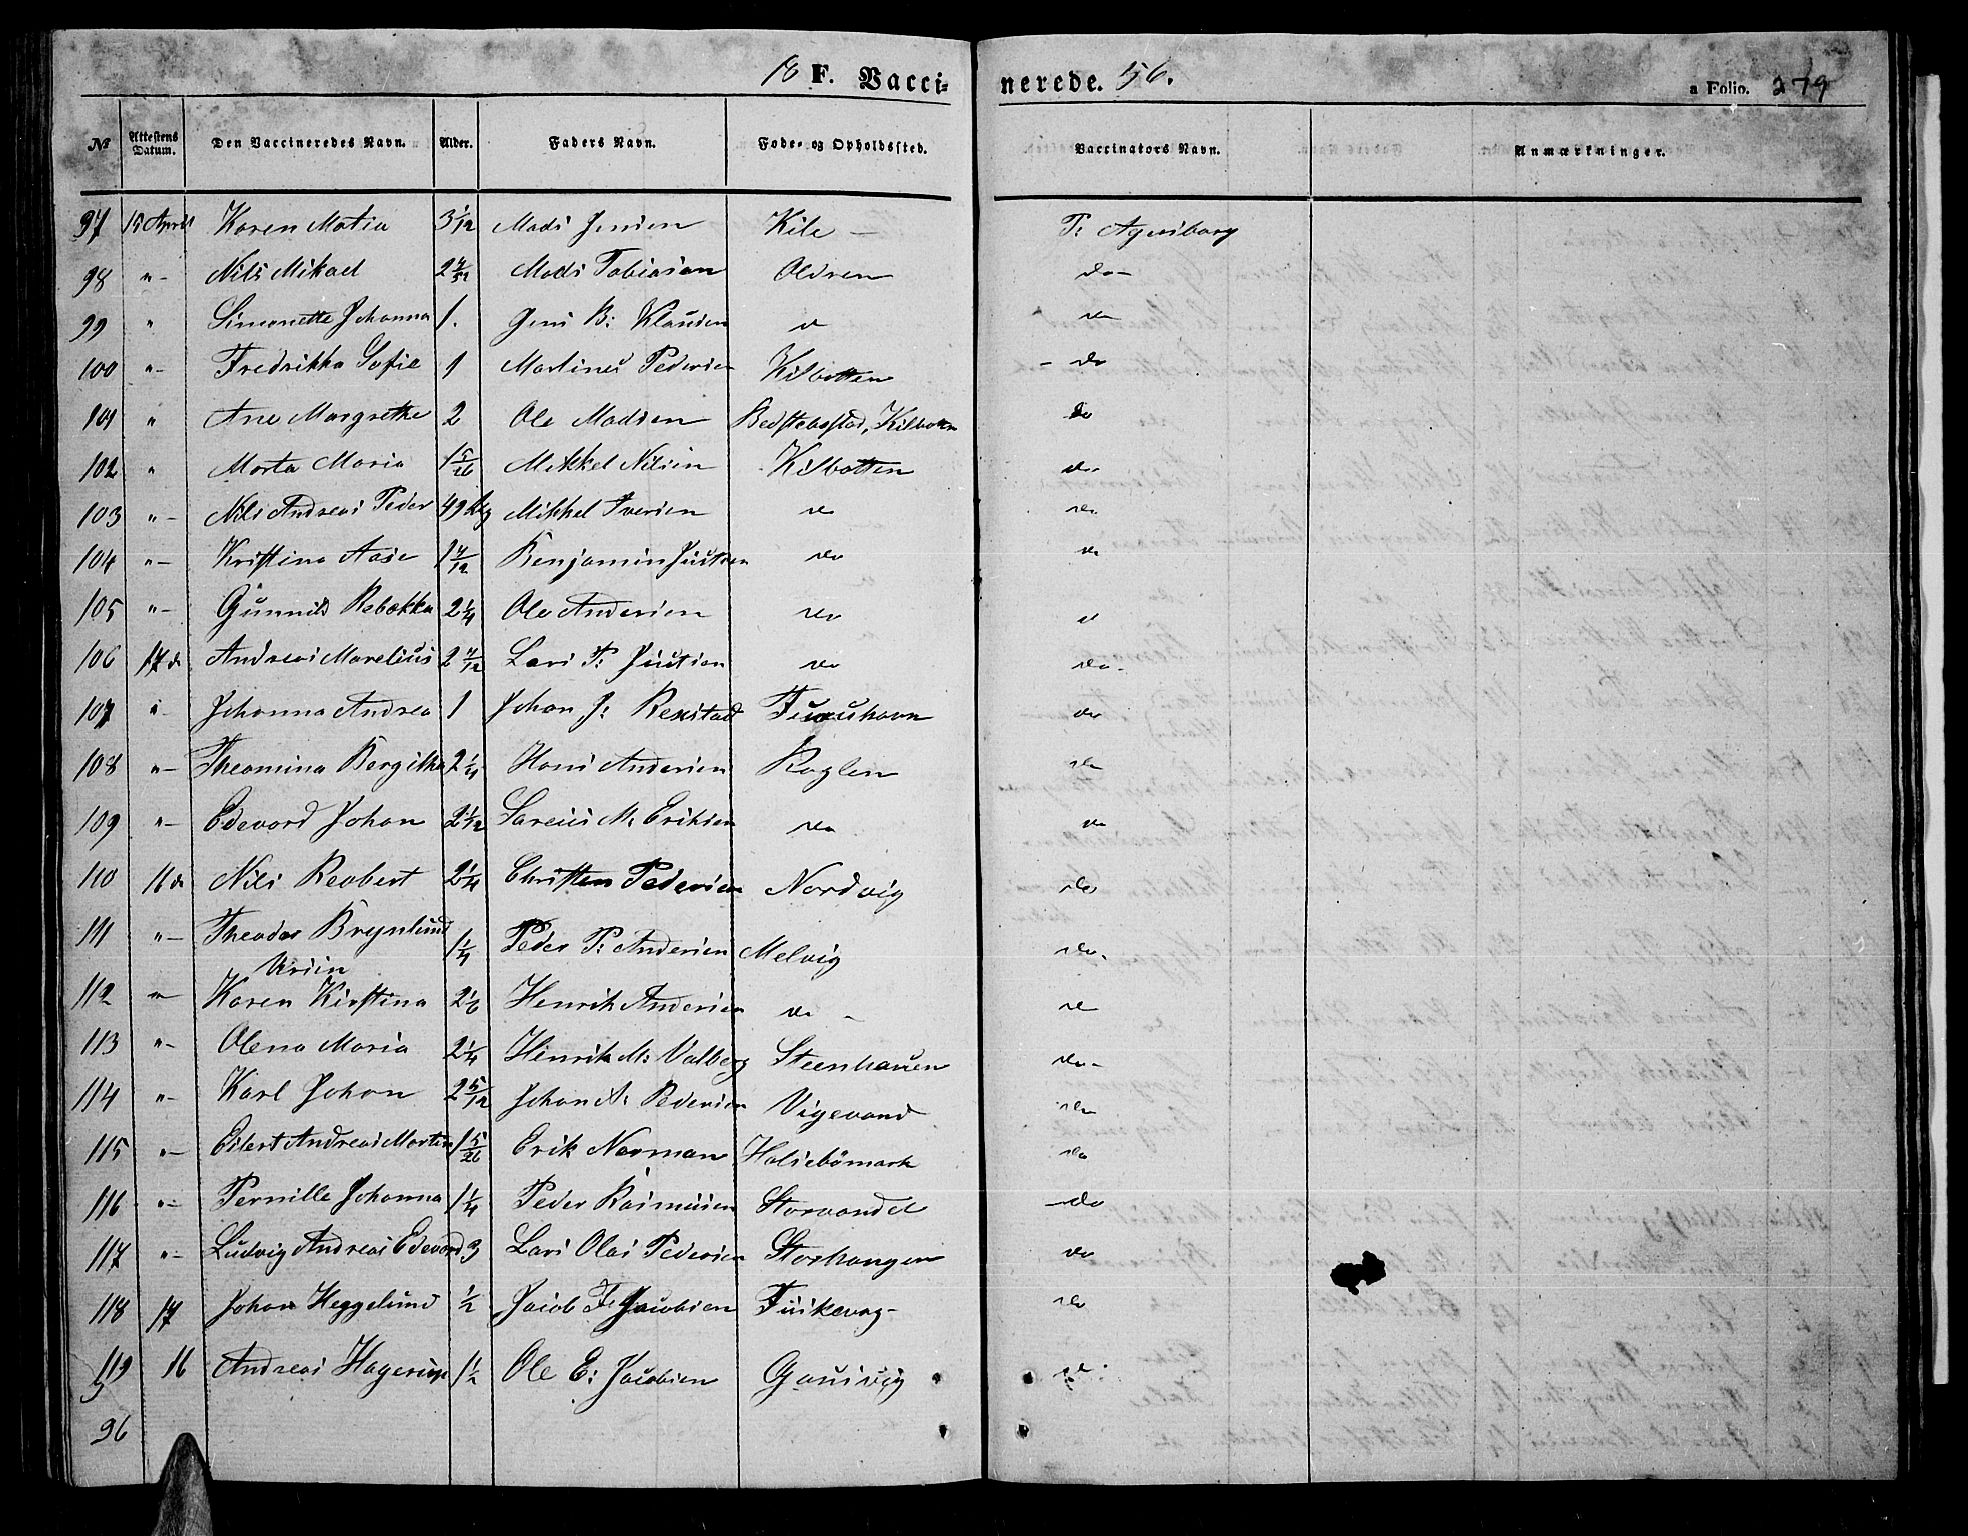 18 F. Vacci- nerede. 56. a Folio. 279
No Attestens Datum. Den Vaccineredes Navn. Alder. Faders Navn. Føde- og Opholdssted. Vaccinators Navn. Anmærkninger.
97 15 April Karen Matia 3 1/12 Mads Jensen Kile - P: Agersborg
98 "- Nils Mikael Mads Tobiasen Oldren do-
99 " Simonette Johanna 1. Jens B: Klausen do do
100 "- Fredrikka Sofie 1 Martines Pedersen Kilbotten - do
101 " Ane Margrethe 2 Ole Madsen Kilbotn do
102 " Marta Maria 1 5/26 Mikkel Nilsen Kilbotten do
103 "- Nils Andreas Peder Mikkel Iversen do do
104 "- Kristina Aase 1 7/12 Benjamin Justsen do do
105 "- Gunnild Rebekka 2 1/4 Ole Andersen do do
106 17 do Andreas Marelius 2 7/12 Lars P: Justsen do do-
107 "- Johanna Andrea 1 Johan J: do
108 "- Theomina Bergitha 2 1/4 Hans Andersen Roglen do
109 "- Edevard Johan 2 1/12 Sareius M: Eriksen do do
110 16 do Nils Reobert 2 1/4 Christten Pedersen Nordvig do
111 "- Theodor Brynlund 1 1/4 Peder P: Andersen Melvig do.
112 "- Karen Kirstina 2 1/6 Henrik Andersen do - do
113 "- Olena Maria 2 1/4 Henrik M: Valberg Steenhauen do-
114 "- Karl Johan 2 5/12 Johan A: Pedersen Vigevand do
115 "- Eilert Andreas Morten 1 5/26 Erik Norman Halsebømark do
116 "- Pernille Johanna 1 1/4 Peder Rasmusen Storvandet do
117 "- Ludvig Andreas Edevard 3 Lars Olai Pedersen Storhaugen do
118 17 Johan Heggelund 1/2 Jacob F: Jacobsen Fuskevag - do
119 16 Andreas Hagerup 1 1/2 Ole E: Jacobsen Gausvig do
96